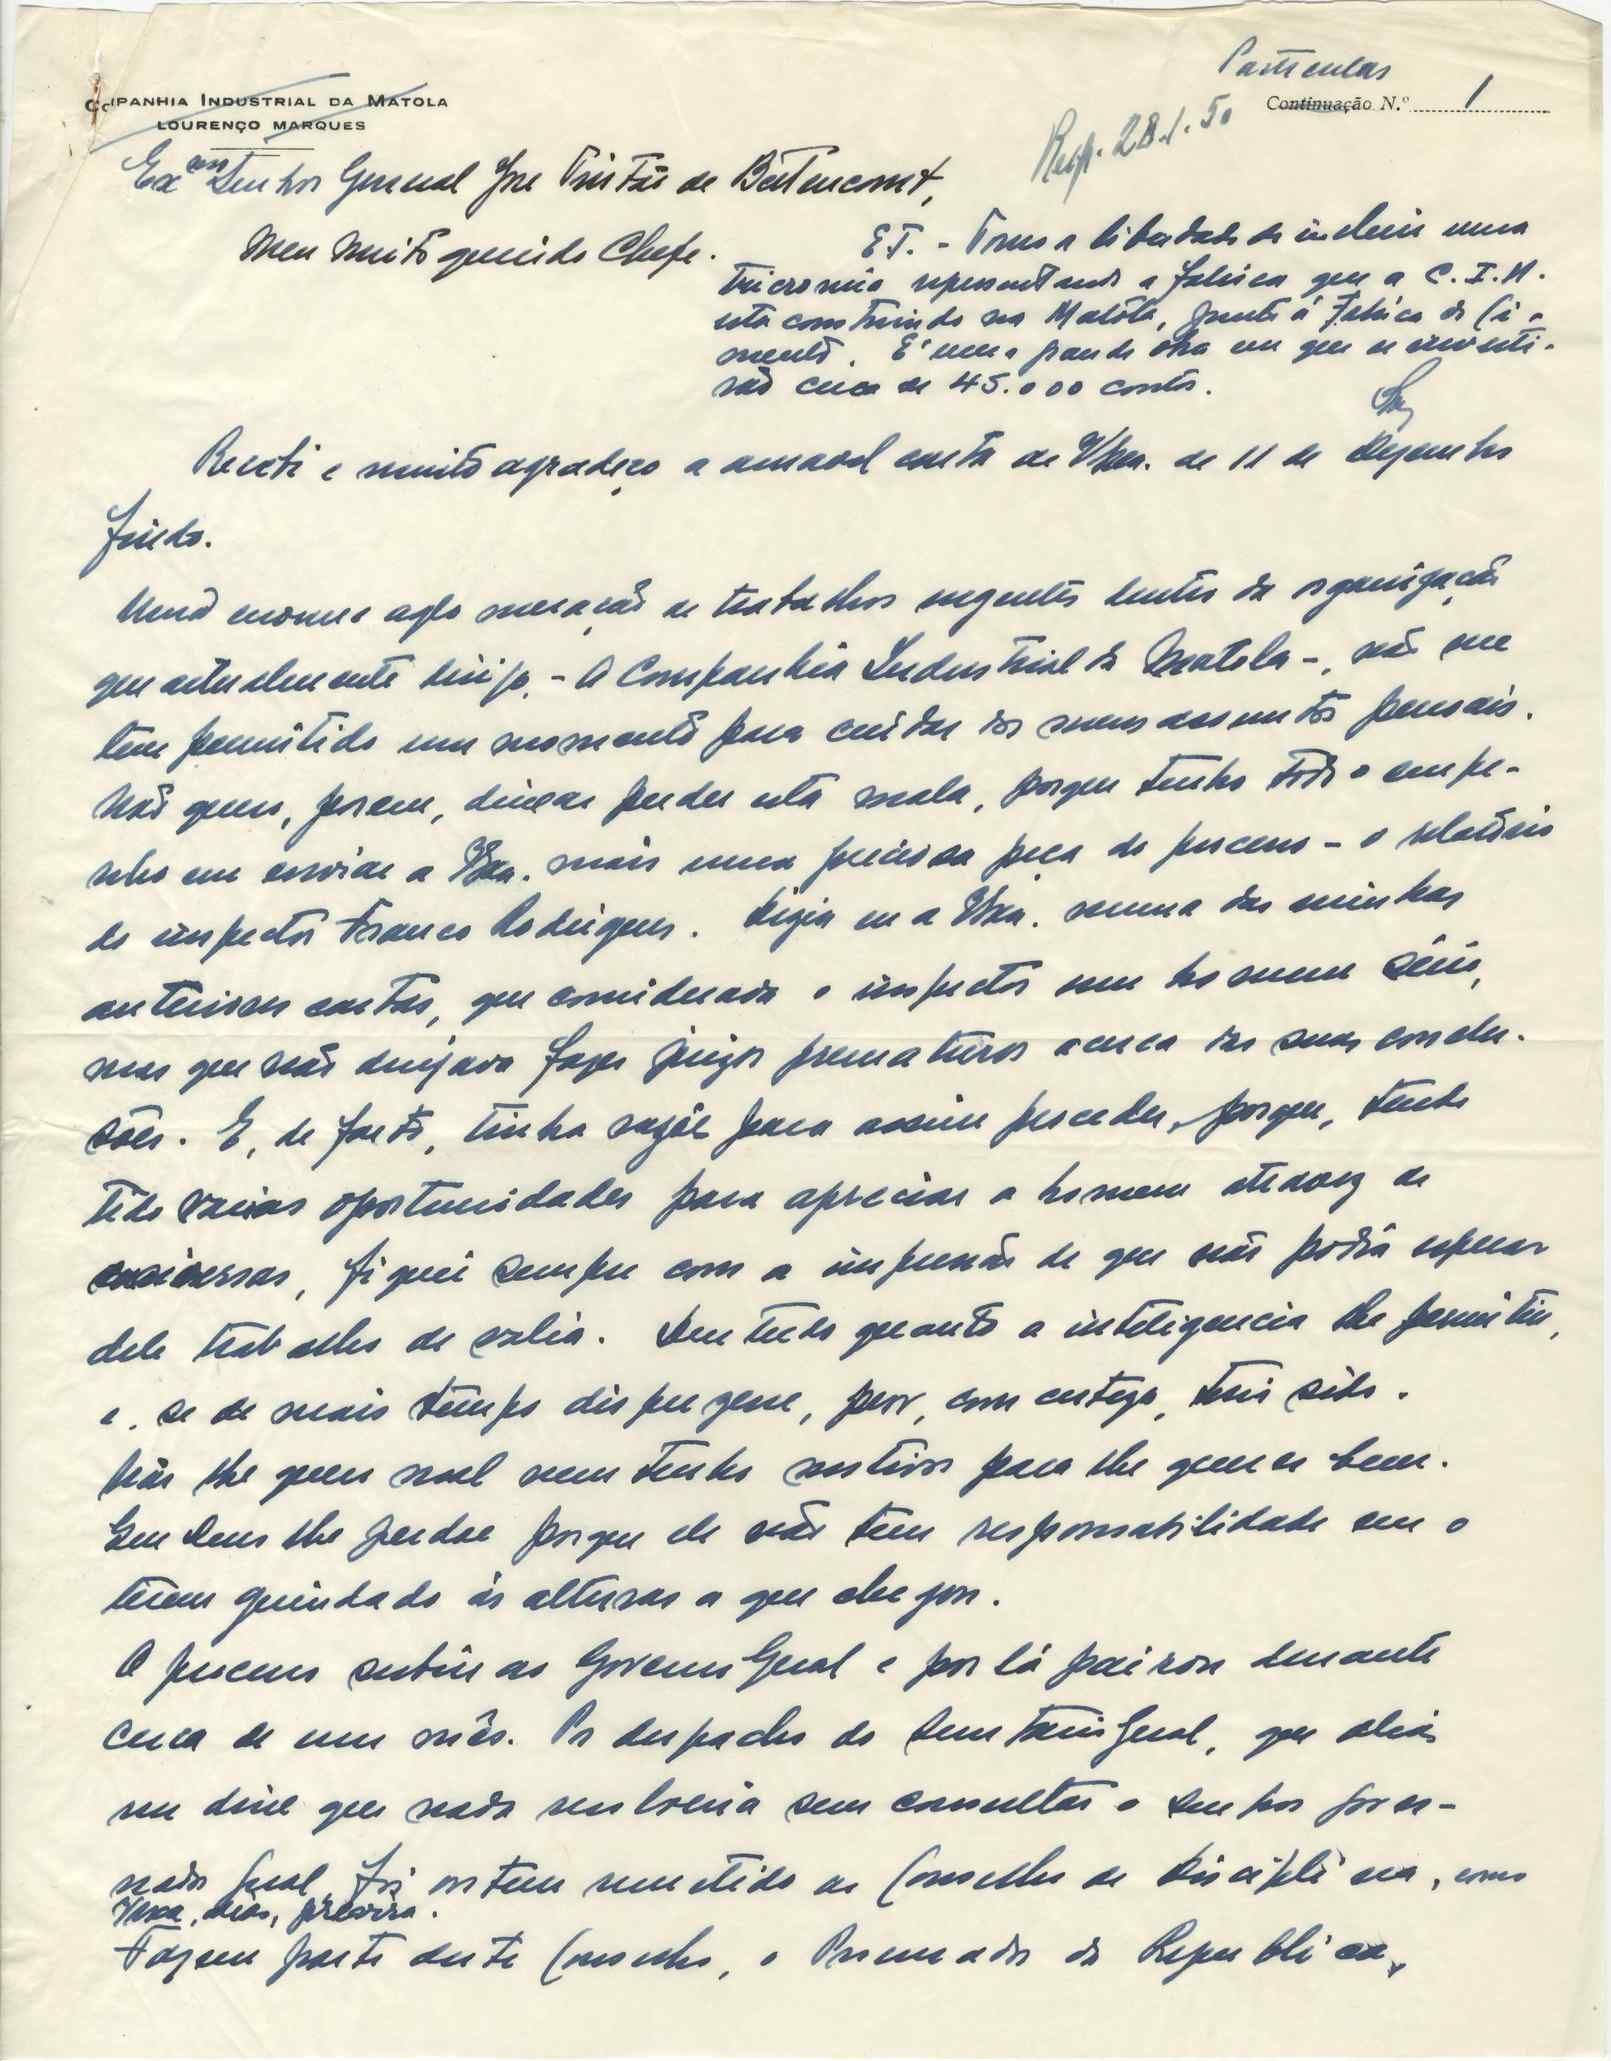 Particular
COMPANHIA INDUSTRIAL DA MATOLA
LOURENÇO MARQUES
Continuação N.º 1
Resp. 28.1.50
Exᵐᵒ Senhor General José Tristão de Bettencourt,
Meu muito querido Chefe.
E.T. - Tomo a liberdade de incluir uma
tricromia representando a fabrica que a C.I.M.
está construindo na Matóla, junto á Fabrica de Ci-
mento. É uma grande obra em que se investi-
rão cerca de 45.000 contos.
Recebi e muito agradeço a amavel carta de VExa. de 11 de Dezembro
findo.
Uma enorme aglomeração de trabalhos urgentes dentro da organização
que actualmente dirijo, - A Companhia Industrial da Matola -, não me
tem permitido um momento para cuidar dos meus assuntos pessoais.
Não quero, porem, deixar perder esta mala, porque tenho todo o empe-
nho em enviar a VExa. mais uma preciosa peça do processo - o relatório
do inspector Franco Rodrigues. Dizia eu a VExa. numa das minhas
anteriores cartas, que considerava o inspector um homem sério,
mas que não desejava fazer juizos prematuros acerca das suas conclu-
sões. E, de facto, tinha razão para assim proceder, porque, tendo
tido varias oportunidades para apreciar o homem atravez de
conversas, fiquei sempre com a impressão de que não podia esperar
dele trabalho de valia. Deu tudo quanto a inteligencia lhe permitiu,
e, se de mais tempo dispuzesse, peor, com certeza, teria sido.
Não lhe quero mal nem tenho motivos para lhe querer bem.
Que Deus lhe perdoe porque ele não tem responsabilidade em o
terem guindado ás alturas a que chegou.
O processo subiu ao Governo Geral e por lá pairou durante
cerca de um mês. Por despacho do Secretario Geral, que aliás
me disse que nada resolveria sem consultar o Senhor Gover-
nador Geral, foi ontem remetido ao Conselho de Disciplina, como
VExa., aliás, previra.
Fazem parte deste Conselho, o Procurador da Republica,